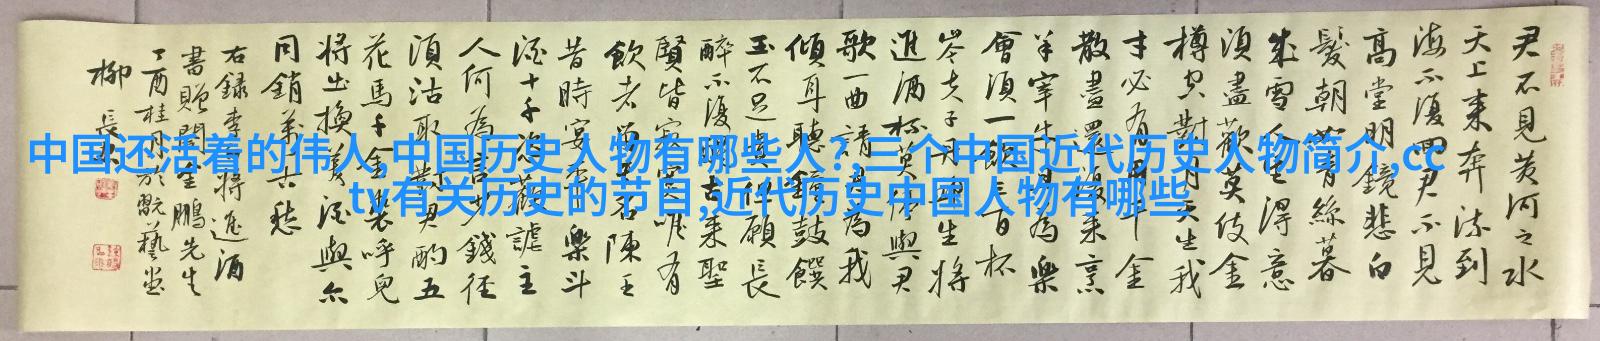 中国还活着的伟人,中国历史人物有哪些人?,三个中国近代历史人物简介,cc
tv有关历史的节目,近代历史中国人物有哪些
君不見黄河之水
天上来奔流到
海不復回君不見
高堂明鏡悲白
髮朝如青絲暮
成雪人生得意
須盡歡莫使金
樽空對月天生我
才必有用千金
散盡還復来烹
羊宰牛且為樂
會須一飲三百杯
岑夫子丹丘生將
進酒杯莫停與君
歌一曲請君為我
傾耳聽鐘鼓饌
玉不足貴但願長
醉不復醒古来聖
賢皆寂寞唯有
飲者留其名陳王
昔時宴平樂斗
酒十千恣歡謔主
人何為言少錢径
須沽取對君酌五
花馬千金裘呼兒
將出換美酒與尔
同銷萬古愁
右録李白將進酒
書贈閆金鵬先生
丁酉桂月於翫藝堂
柳長